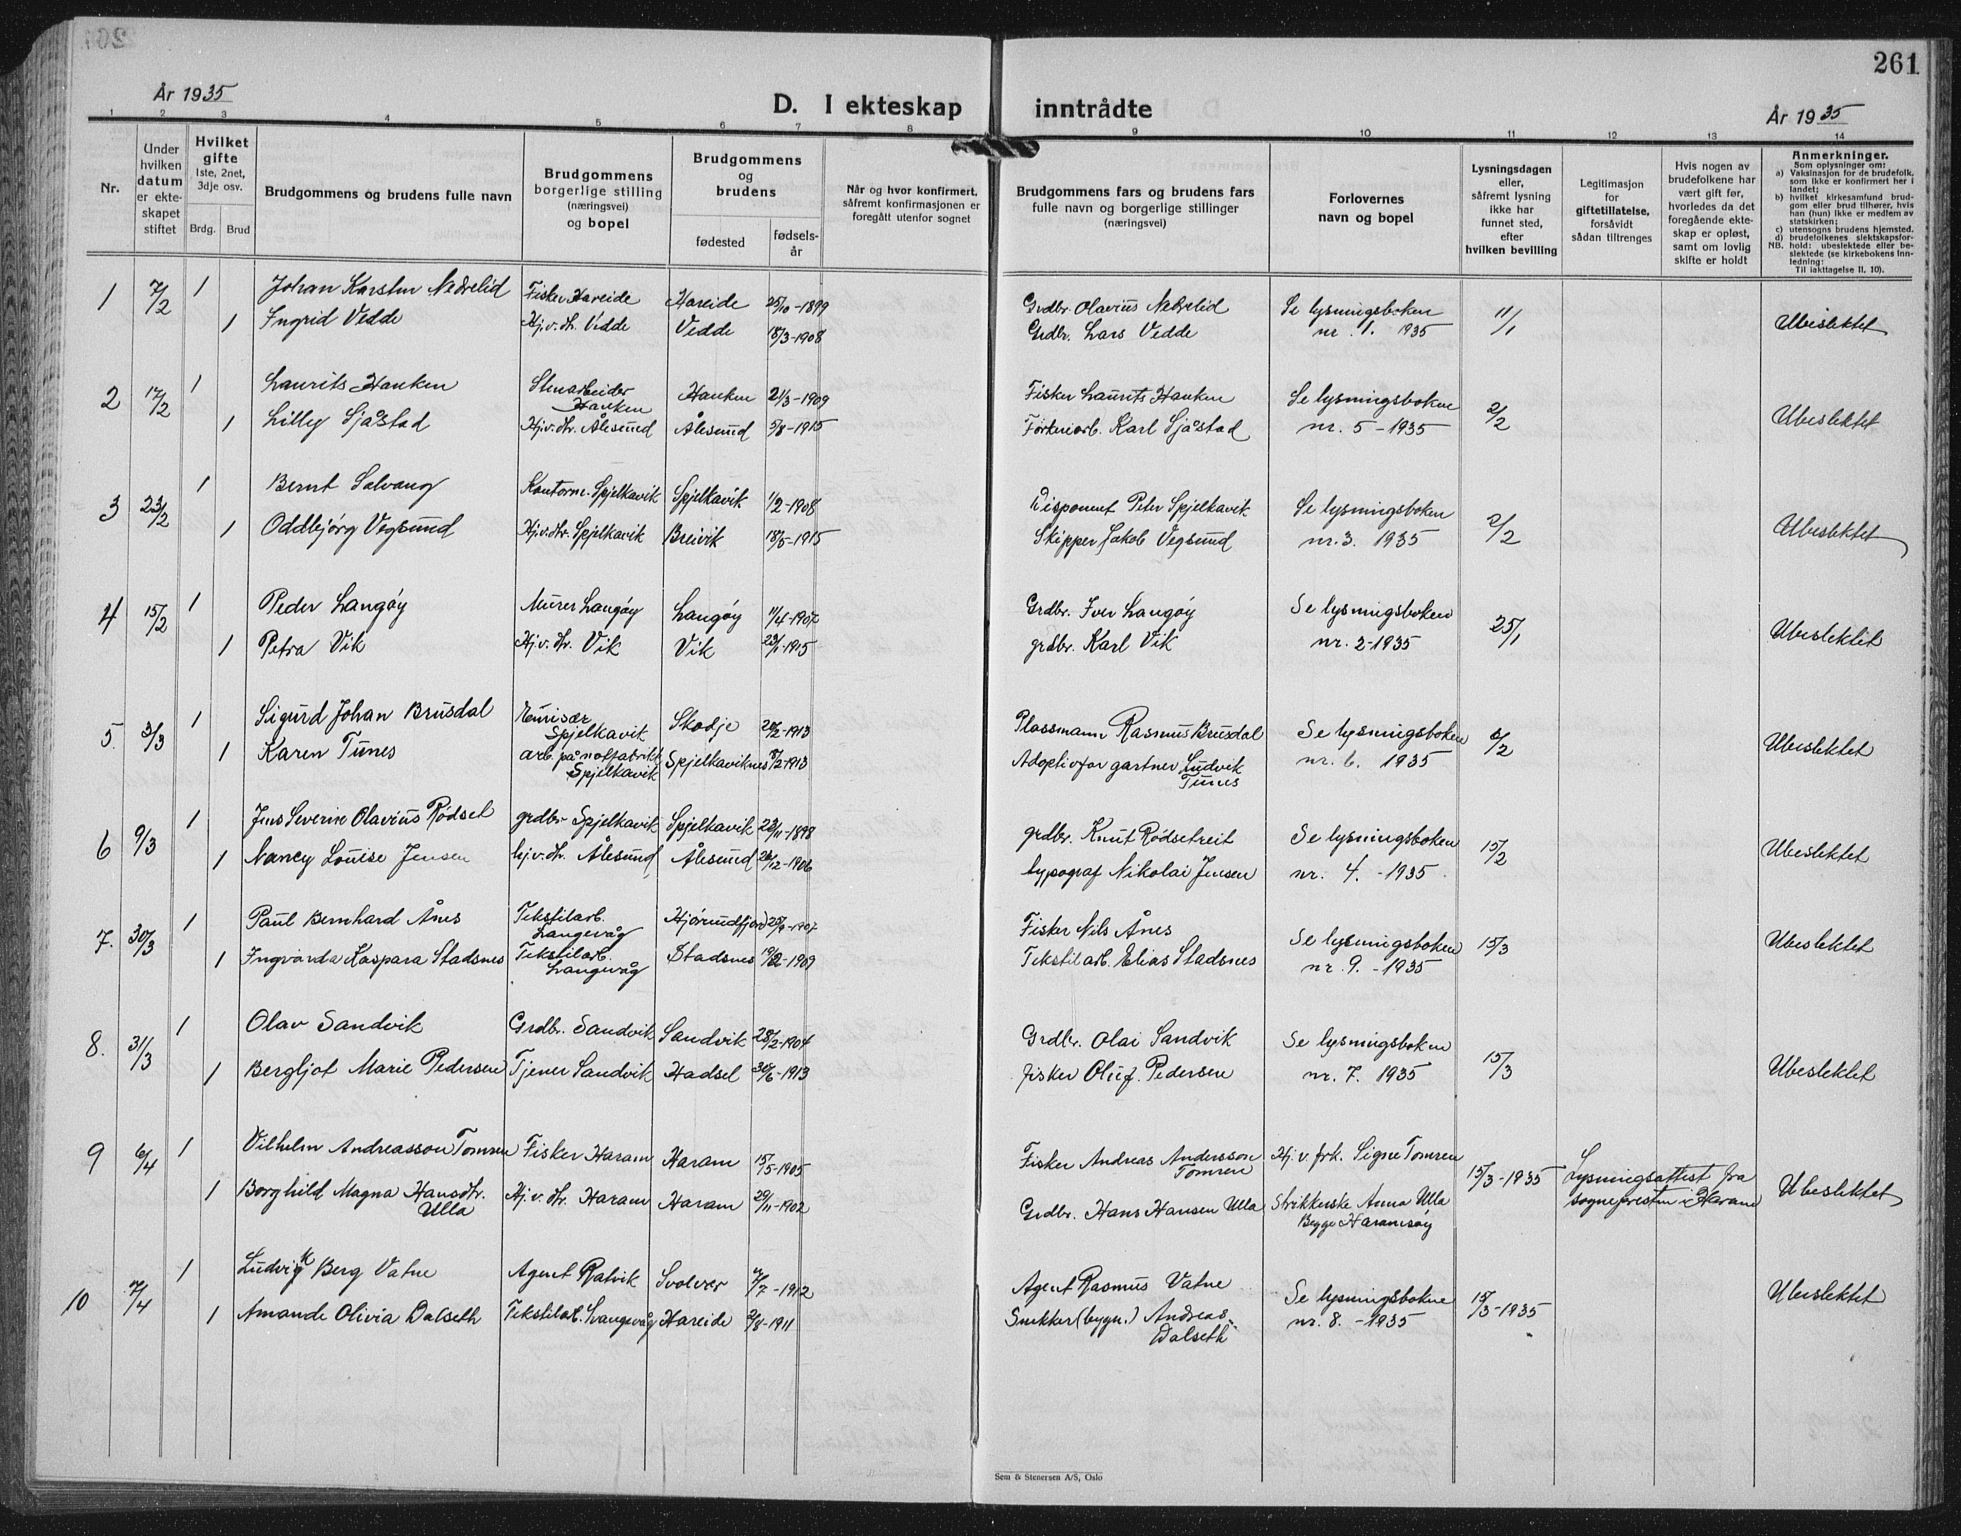 261
År 1935
D. I ekteskap inntrådte
År 1935
1 2 3 4 5 6 7 8 9 10 11 12 13 14
Nr.
Under hvilken datum er ekteskapet stiftet
Hvilket gifte
1ste, 2net, 3dje osv.
Brdg. Brud
Brudgommens og brudens fulle navn
Brudgommens borgerlige stilling (næringsvei) og bopel
Brudgommens og brudens
fødested
fødselsår
Når og hvor konfirmert, såfremt konfirmasjonen er foregått utenfor sognet
Brudgommens fars og brudens fars fulle navn og borgerlige stillinger (næringsvei)
Forlovernes navn og bopel
Lysningsdagen eller, såfremt lysning ikke har funnet sted, efter hvilken bevilling
Legitimasjon for giftetillatelse, forsåvidt sådan tiltrenges
Hvis nogen av brudefolkene har vært gift før, hvorledes da det foregående ekteskap er opløst, samt om lovlig skifte er holdt
Anmerkninger.
Som oplysninger om:
a) Vaksinasjon for de brudefolk, som ikke er konfirmert her i landet;
b) hvilket kirkesamfund brudgom eller brud tilhører, hvis han (hun) ikke er medlem av statskirken;
c) utensogns brudens hjemsted.
d) brudefolkenes slektskapsforhold: ubeslektede eller beslektede (se kirkebokens innledning:
NB.
Til iakttagelse II, 10).
1 7/2 1 Johan Karsten Nedrelid Fisker Hareide Hareide 25/10-1899 Grdbr. Olavius Nedrelid Se lysningsboken 11/1 Ubeslektet
1 Ingrid Vedde Hj.v.dtr. Vedde Vedde 18/3-1908 Grdbr. Lars Vedde nr. 1. 1935
2 17/2 1 Laurits Hauken Stenarbeider Hauken Hauken 21/3-1909 Fisker Laurits Hauken Se lysningsboken 2/2 Ubeslektet
1 Lilly Sjåstad Hj.v.dtr. Ålesund Ålesund 5/8-1915 Karl Sjåstad nr. 5-1935
3 23/2 1 Bernt Solvang Kontorm. Spjelkavik Spjelkavik 1/2-1908 Disponent Peter Spjelkavik Se lysningsboken 2/2 Ubeslektet
1 Oddbjørg Vegsund Hj.v.dtr. Spjelkavik Breivik 18/5-1915 Skipper Jakob Vegsund nr. 3. 1935
4 15/2 1 Peder Langøy Murer Langøy Langøy 11/4-1907 Grdbr. Iver Langøy Se lysningsboken 25/1 Ubeslektet
1 Petra Vik Hj.v.dtr. Vik Vik 23/1-1915 grdbr. Karl Vik nr. 2-1935
5. 3/3 1 Sigurd Johan Brusdal Spjelkavik Skodje 20/2-1913 Plassmann Rasmus Brusdal Se lysningsboken 6/2 Ubeslektet
1 Karen Tunes arb. på notfabrikk Spjelkavik Spjelkaviknes 8/2-1913 Adoptivfar gartner Ludvik Tunes nr. 6. 1935
6 9/3 1 Jens Severin Olavius Rødset grdbr Spjelkavik Spjelkavik 23/11-1898 grdbr. Knut Rødsetreit Se lysningsboken 15/2 Ubeslektet
1 Nancy Louise Jensen hj.v.dtr. Ålesund Ålesund 26/12-1906 typograf Nikolai Jensen nr. 4. -1935.
7. 30/3 1 Paul Bernhard Ånes Tekstilarb. Langevåg Hjørundfjord -1907 Fisker Nils Ånes Se lysningsboken 15/3 Ubeslektet
1 Ingvarda Kaspara Stadsnes Tekstilarb. Langevåg Stadsnes 19/2-1909 Tekstilarb. Elias Stadsnes nr. 9. -1935
8. 31/3 1 Olav Sandvik Grdbr. Sandvik Sandvik 28/2-1904 Grdbr. Olai Sandvik Se lysningsboken 15/3 Ubeslektet
1 Bergljot Marie Pedersen Tjener Sandvik Hadsel 30/6-1913 fisker Oluf Pedersen nr. 7. 1935
9 6/4 1 Vilhelm Andreasson Tomren Fisker Haram Haram 15/5-1905 Fisker Andreas Andersson Tomren Hj.v.frk. Signe Tomren 15/3-1935 Lysningsattest fra sognepresten i Haram Ubeslektet
1 Borghild Magna Hansdtr. Ulla Hj.v.dtr. Haram Haram 29/11-1902 Grdbr. Hans Hansen Ulla Strikkerske Anna Ulla Begge Haramsøy
10 7/4 1 Ludvik Berg Vatne Agent Ratvik Svolvær 7/7-1912 Agent Rasmus Vatne Se lysningsbokne 15/3-1935 Ubeslektet
1 Amande Olivia Dalseth Tekstilarb. Langevåg Hareide 2/8-1911 Snekker (bygn.) Andreas Dalseth nr. 8. -1935
Sem & Stenersen A/S, Oslo